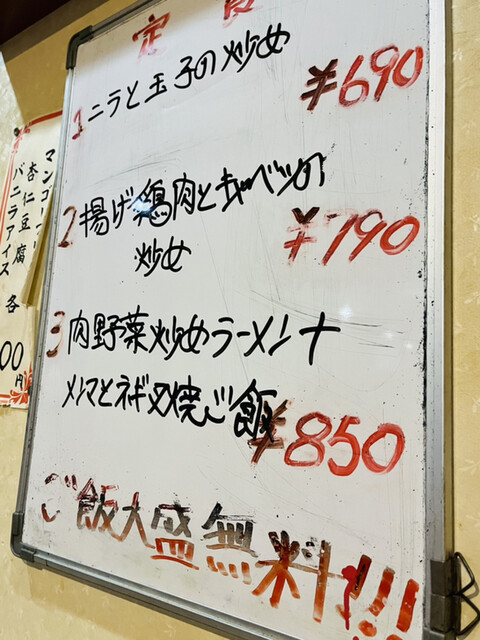 定食
1 ニラと玉子の炒め
¥690
2 揚げ鶏肉とキャベツの
炒め
¥790
3 肉野菜炒めラーメン+
メンマとネギ叉焼ご飯
¥850
ご飯大盛無料!!!
杏仁豆腐
バニラアイス 各
00円